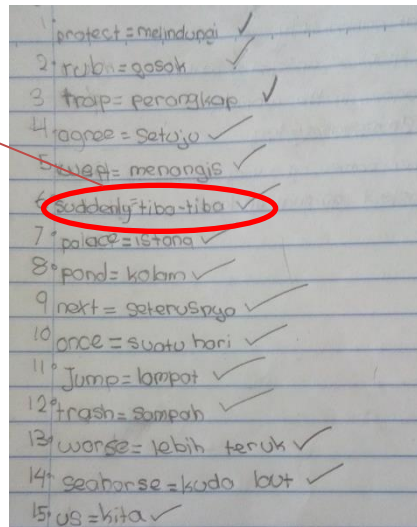 1. protect = melindungi
2. rub = gosok
3 trap = perangkap
4 agree = setuju
5 = menangis
6 suddenly = tiba-tiba
7 palace = istana
8. pond = kolam
9 next = seterusnya
10 once = suatu hari
11. Jump = lompat
12. trash = sampah
13. worse = lebih teruk
14. seahorse = kuda laut
15. us = kita